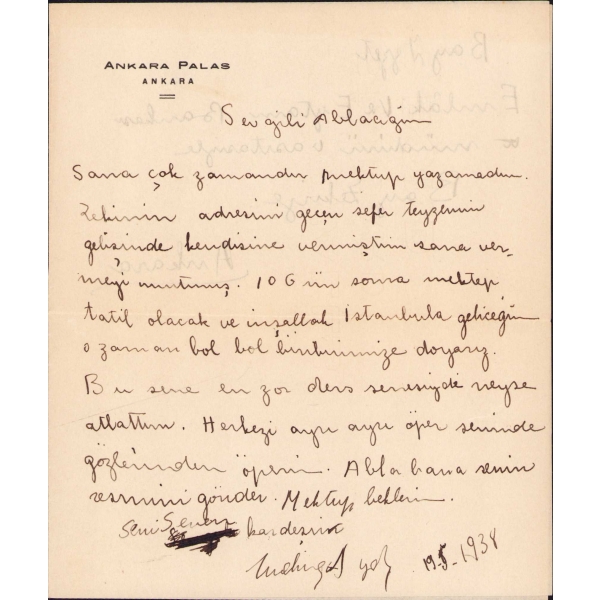 ANKARA PALAS
ANKARA
Sevgili Ablacığım
Sana çok zamandır mektup yazamadım.
Zekinin adresini geçen sefer teyzemin
gelişinde kendisine vermiştim sana ver-
meyi unutmuş. 10 Gün sonra mektep
tatil olacak ve inşallah İstanbula geliceğim
o zaman bol bol birbirimize doyarız.
Bu sene en zor ders senesiydi neyse
atlattım. Herkezi ayrı ayrı öper seninde
gözlerinden öperim. Abla bana senin
resmini gönder. Mektup beklerim.
Seni Seven
kardeşin
19.5.1938